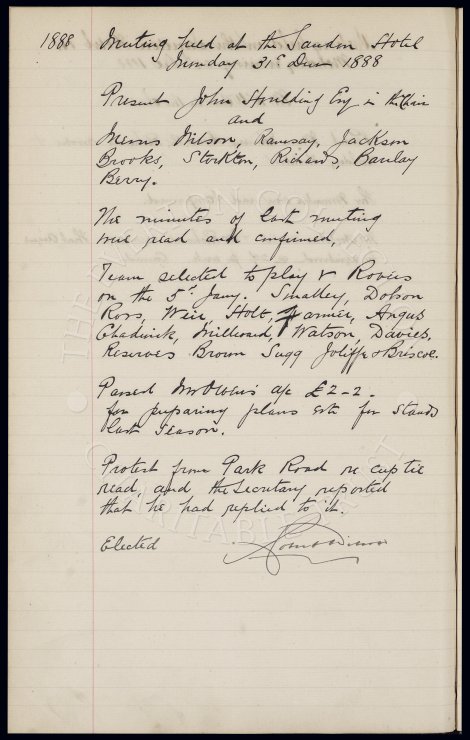 1888 Meeting held at the Sandon Hotel
Monday 31st Decr 1888
Present John Houlding Esq in the Chair
and
Messrs Wilson, Ramsay, Jackson
Brooks, Stockton, Richards, Barclay
Berry.
The minutes of last meeting
were read and confirmed,
Team selected to play v Rovers
on the 5th Jany. Smalley, Dobson
Ross, Weir, Holt, Farmer, Angus
Chadwick, Milleward, Watson, Davies,
Reserves Brown Sugg Joliffe & Briscoe.
Passed Mr Owens a/c £2-2-
for preparing plans &c for Stands
last season.
Protest from Park Road re cup tie
read, and the Secretary reported
that he had replied to it.
Elected